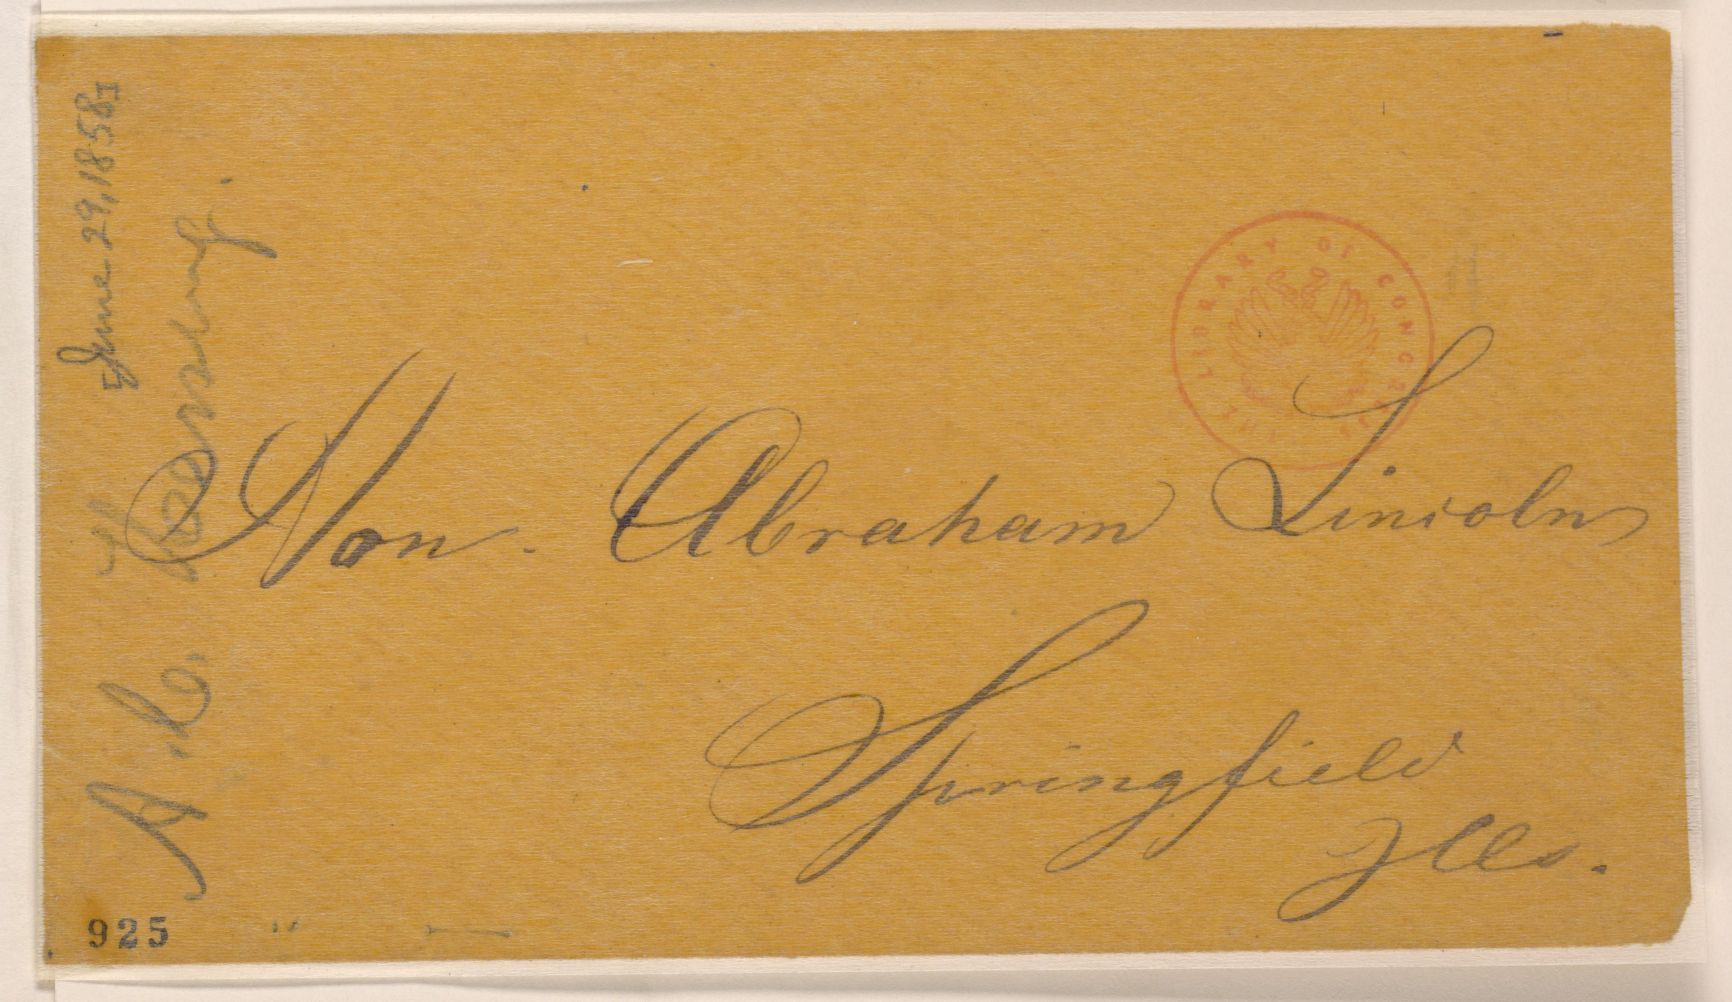 [June 29, 1858]
A. C. Harding.
Hon. Abraham Lincoln
Springfield
Ills.
THE LIBRARY OF CONGRESS
925